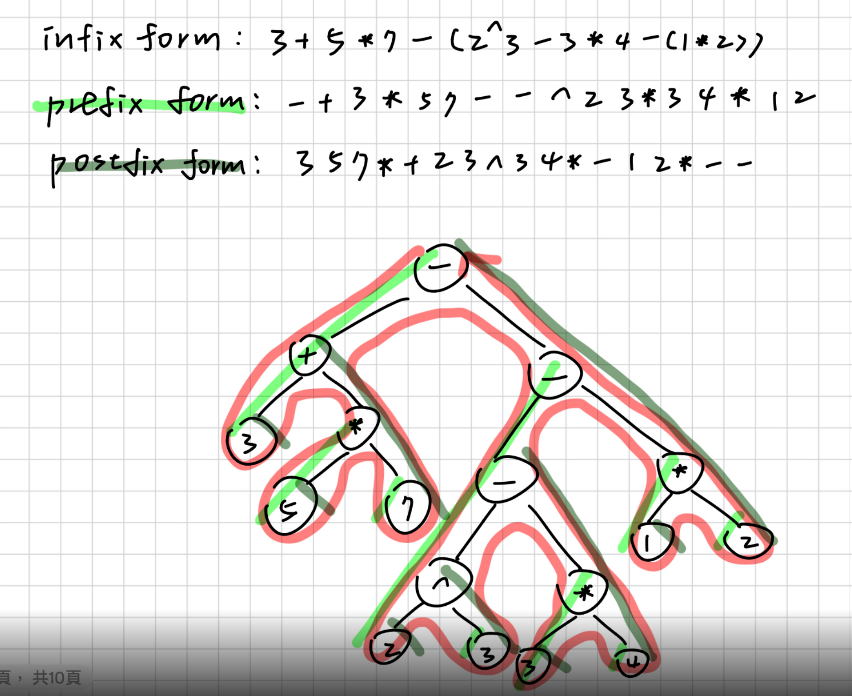 infix form : 3 + 5 * 7 - (2^3 - 3 * 4 - (1 * 2))
prefix form : - + 3 * 5 7 - - ^ 2 3 * 3 4 * 1 2
postfix form : 3 5 7 * + 2 3 ^ 3 4 * - 1 2 * - -
-
+ -
3 * - *
5 7 1 2
^ *
2 3 3 4
頁， 共10頁